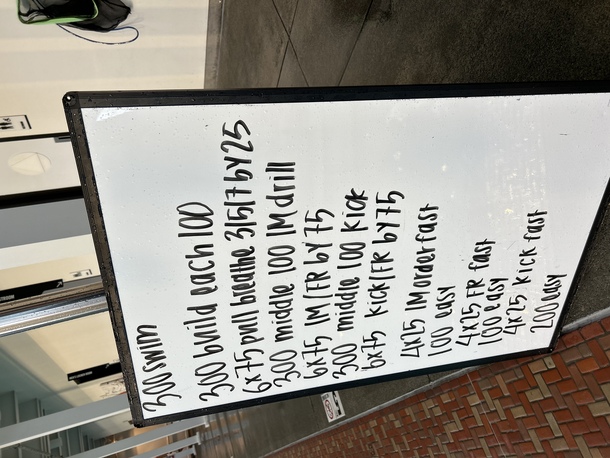 300 swim
300 build each 100
6x75 pull breathe 3/5/7 by 25
300 middle 100 IM drill
6x75 IM/FR by 75
300 middle 100 kick
6x75 kick/FR by 75
4x25 IM order fast
100 easy
4x25 FR fast
100 easy
4x25 kick fast
200 easy